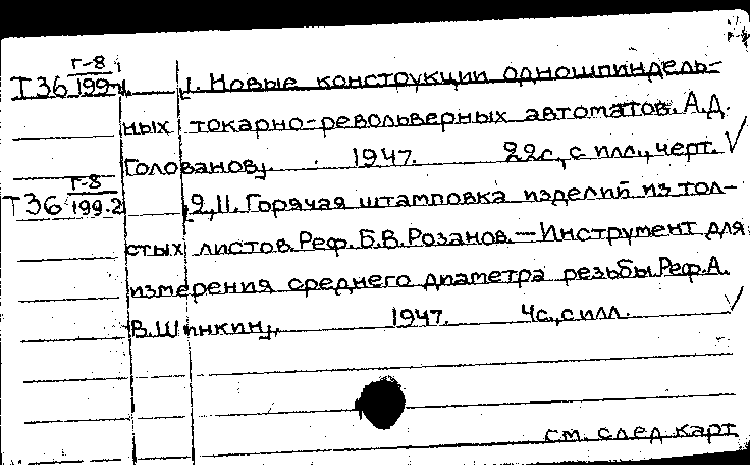 Т36 Г-8/199-1 1. Новые конструкции одношпиндель-
ных токарно-револьверных автоматов. А.Д.
Голованов. 1947. 22с., с илл., черт. ✓
Т36 Г-8/199.2 2,11. Горячая штамповка изделий из тол-
стых листов. Реф. Б.В. Розанов. — Инструмент для
измерения среднего диаметра резьбы. Реф. А.
В. Шинкин. 1947. 4с., с илл. ✓
см. след карт